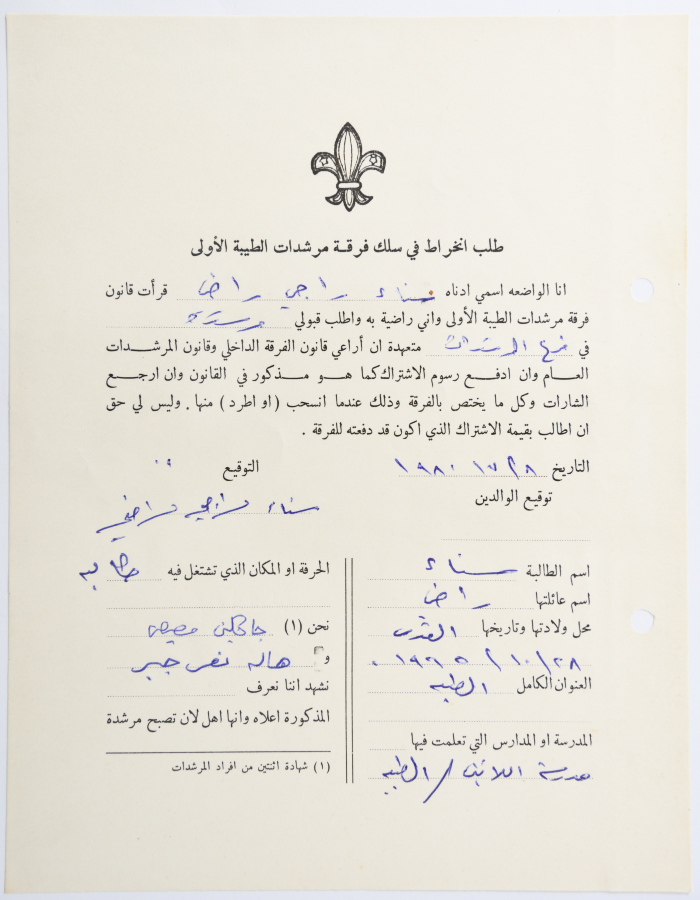 طلب انخراط في سلك فرقة مرشدات الطيبة الأولى
انا الواضعه اسمي ادناه سناء راجي راضي قرأت قانون
فرقة مرشدات الطيبة الأولى واني راضية به واطلب قبولي مرشدة
في المرشدات متعهدة ان أراعي قانون الفرقة الداخلي وقانون المرشدات
العام وان ادفع رسوم الاشتراك كما هو مذكور في القانون وان ارجع
الشارات وكل ما يختص بالفرقة وذلك عندما انسحب (او اطرد) منها. وليس لي حق
ان اطالب بقيمة الاشتراك الذي اكون قد دفعته للفرقة.
التاريخ ١٩٨٠ التوقيع
توقيع الوالدين
سناء راجي راضي
اسم الطالبة سناء
اسم عائلتها راضي
محل ولادتها وتاريخها القدس
٢٨/١٠/١٩٦٥
العنوان الكامل الطيبه
المدرسة او المدارس التي تعلمت فيها
مدرسة اللاتين / الطيبه
الحرفة او المكان الذي تشتغل فيه طالبه
نحن (١) جاكلين
و هاله جبر
نشهد اننا نعرف
المذكورة اعلاه وانها اهل لان تصبح مرشدة
(١) شهادة اثنتين من افراد المرشدات